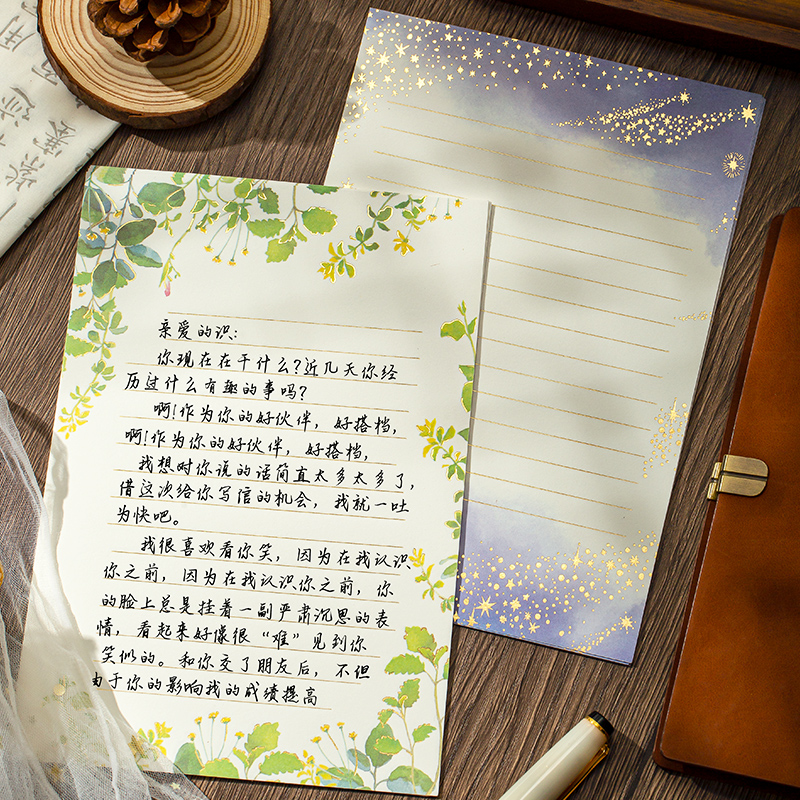 亲爱的识:
你现在在干什么?近几天你经
历过什么有趣的事吗?
啊!作为你的好伙伴，好搭档，
啊!作为你的好伙伴，好搭档，
我想对你说的话简直太多太多了，
借这次给你写信的机会，我就一吐
为快吧。
我很喜欢看你笑，因为在我认识
你之前，因为在我认识你之前，你
的脸上总是挂着一副严肃沉思的表
情，看起来好像很“难”见到你
笑似的。和你交了朋友后，不但
由于你的影响我的成绩提高